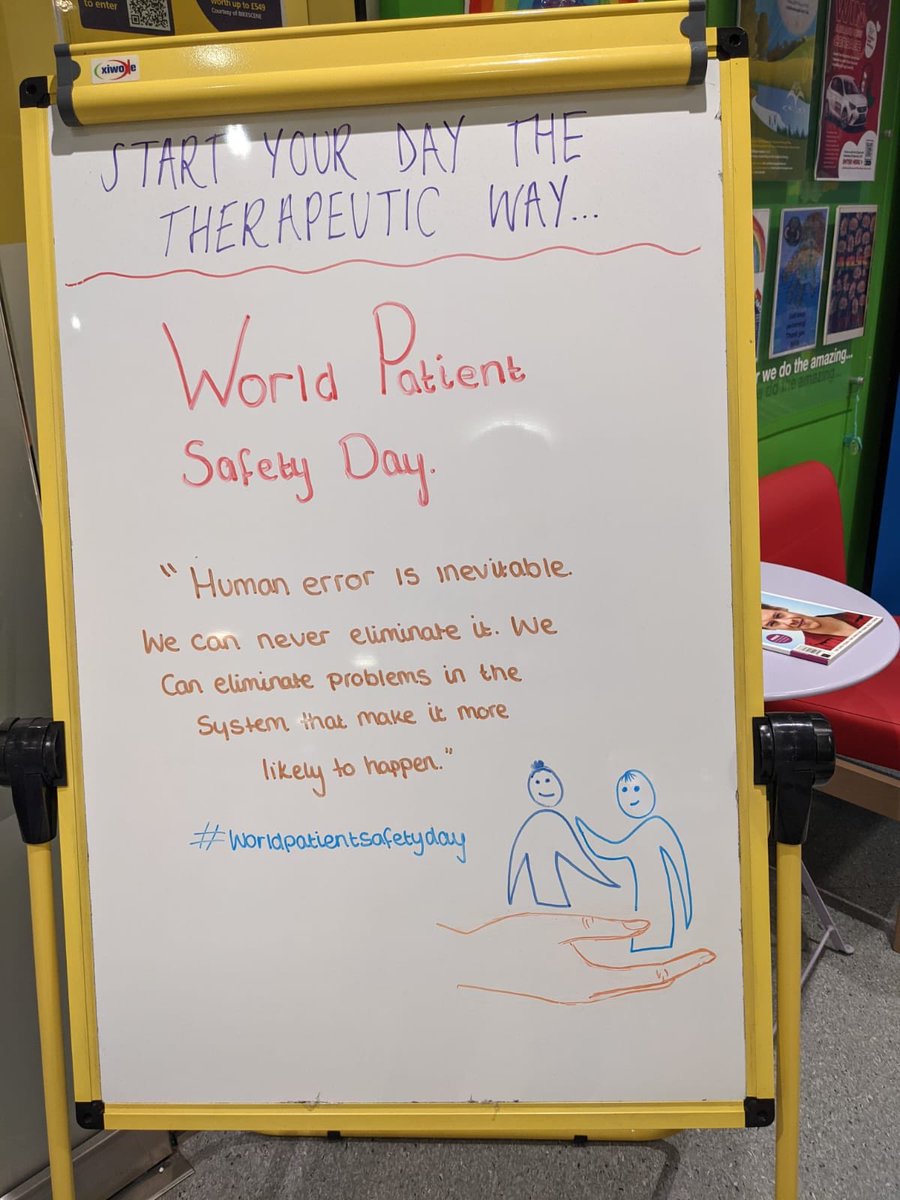 to enter
worth up to £549
Courtesy of BIKESCENE
xiwoxle
START YOUR DAY THE
THERAPEUTIC WAY...
World Patient
Safety Day.
"Human error is inevitable.
We can never eliminate it. We
Can eliminate problems in the
System that make it more
likely to happen."
#Worldpatientsafetyday
we do the amazing...